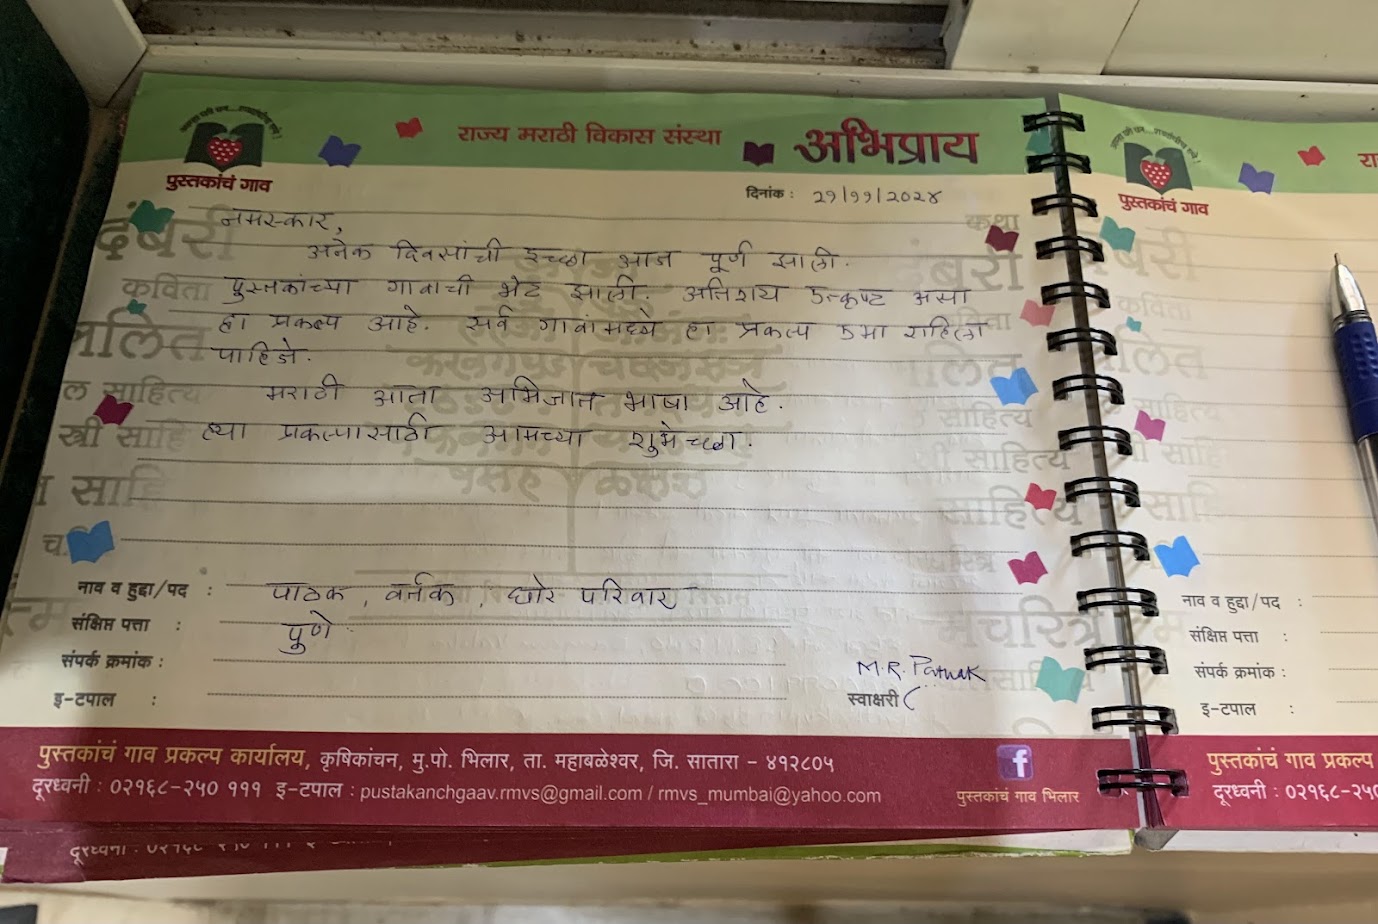 राज्य मराठी विकास संस्था
अभिप्राय
पुस्तकांचं गाव
दिनांक : २१/११/२०२४
नमस्कार,
अनेक दिवसांची इच्छा आज पूर्ण झाली.
पुस्तकांच्या गावाची भेट झाली. अतिशय उत्कृष्ट असा
हा प्रकल्प आहे. सर्व गावांमध्ये हा प्रकल्प उभा राहिला
पाहिजे.
मराठी आता अभिजात भाषा आहे.
ह्या प्रकल्पासाठी आमच्या शुभेच्छा.
नाव व हुद्दा/पद : पाठक, वर्तक, घोरे परिवार
संक्षिप्त पत्ता : पुणे.
संपर्क क्रमांक :
इ-टपाल :
M.R. Pathak
स्वाक्षरी
पुस्तकांचं गाव प्रकल्प कार्यालय, कृषिकांचन, मु.पो. भिलार, ता. महाबळेश्वर, जि. सातारा - ४१२८०५
दूरध्वनी : ०२१६८-२५० १११ इ-टपाल : pustakanchgaav.rmvs@gmail.com / rmvs_mumbai@yahoo.com
पुस्तकांचं गाव भिलार
पुस्तकांचं गाव
नाव व हुद्दा/पद :
संक्षिप्त पत्ता :
संपर्क क्रमांक :
इ-टपाल :
पुस्तकांचं गाव प्रकल्प
दूरध्वनी : ०२१६८-२५०